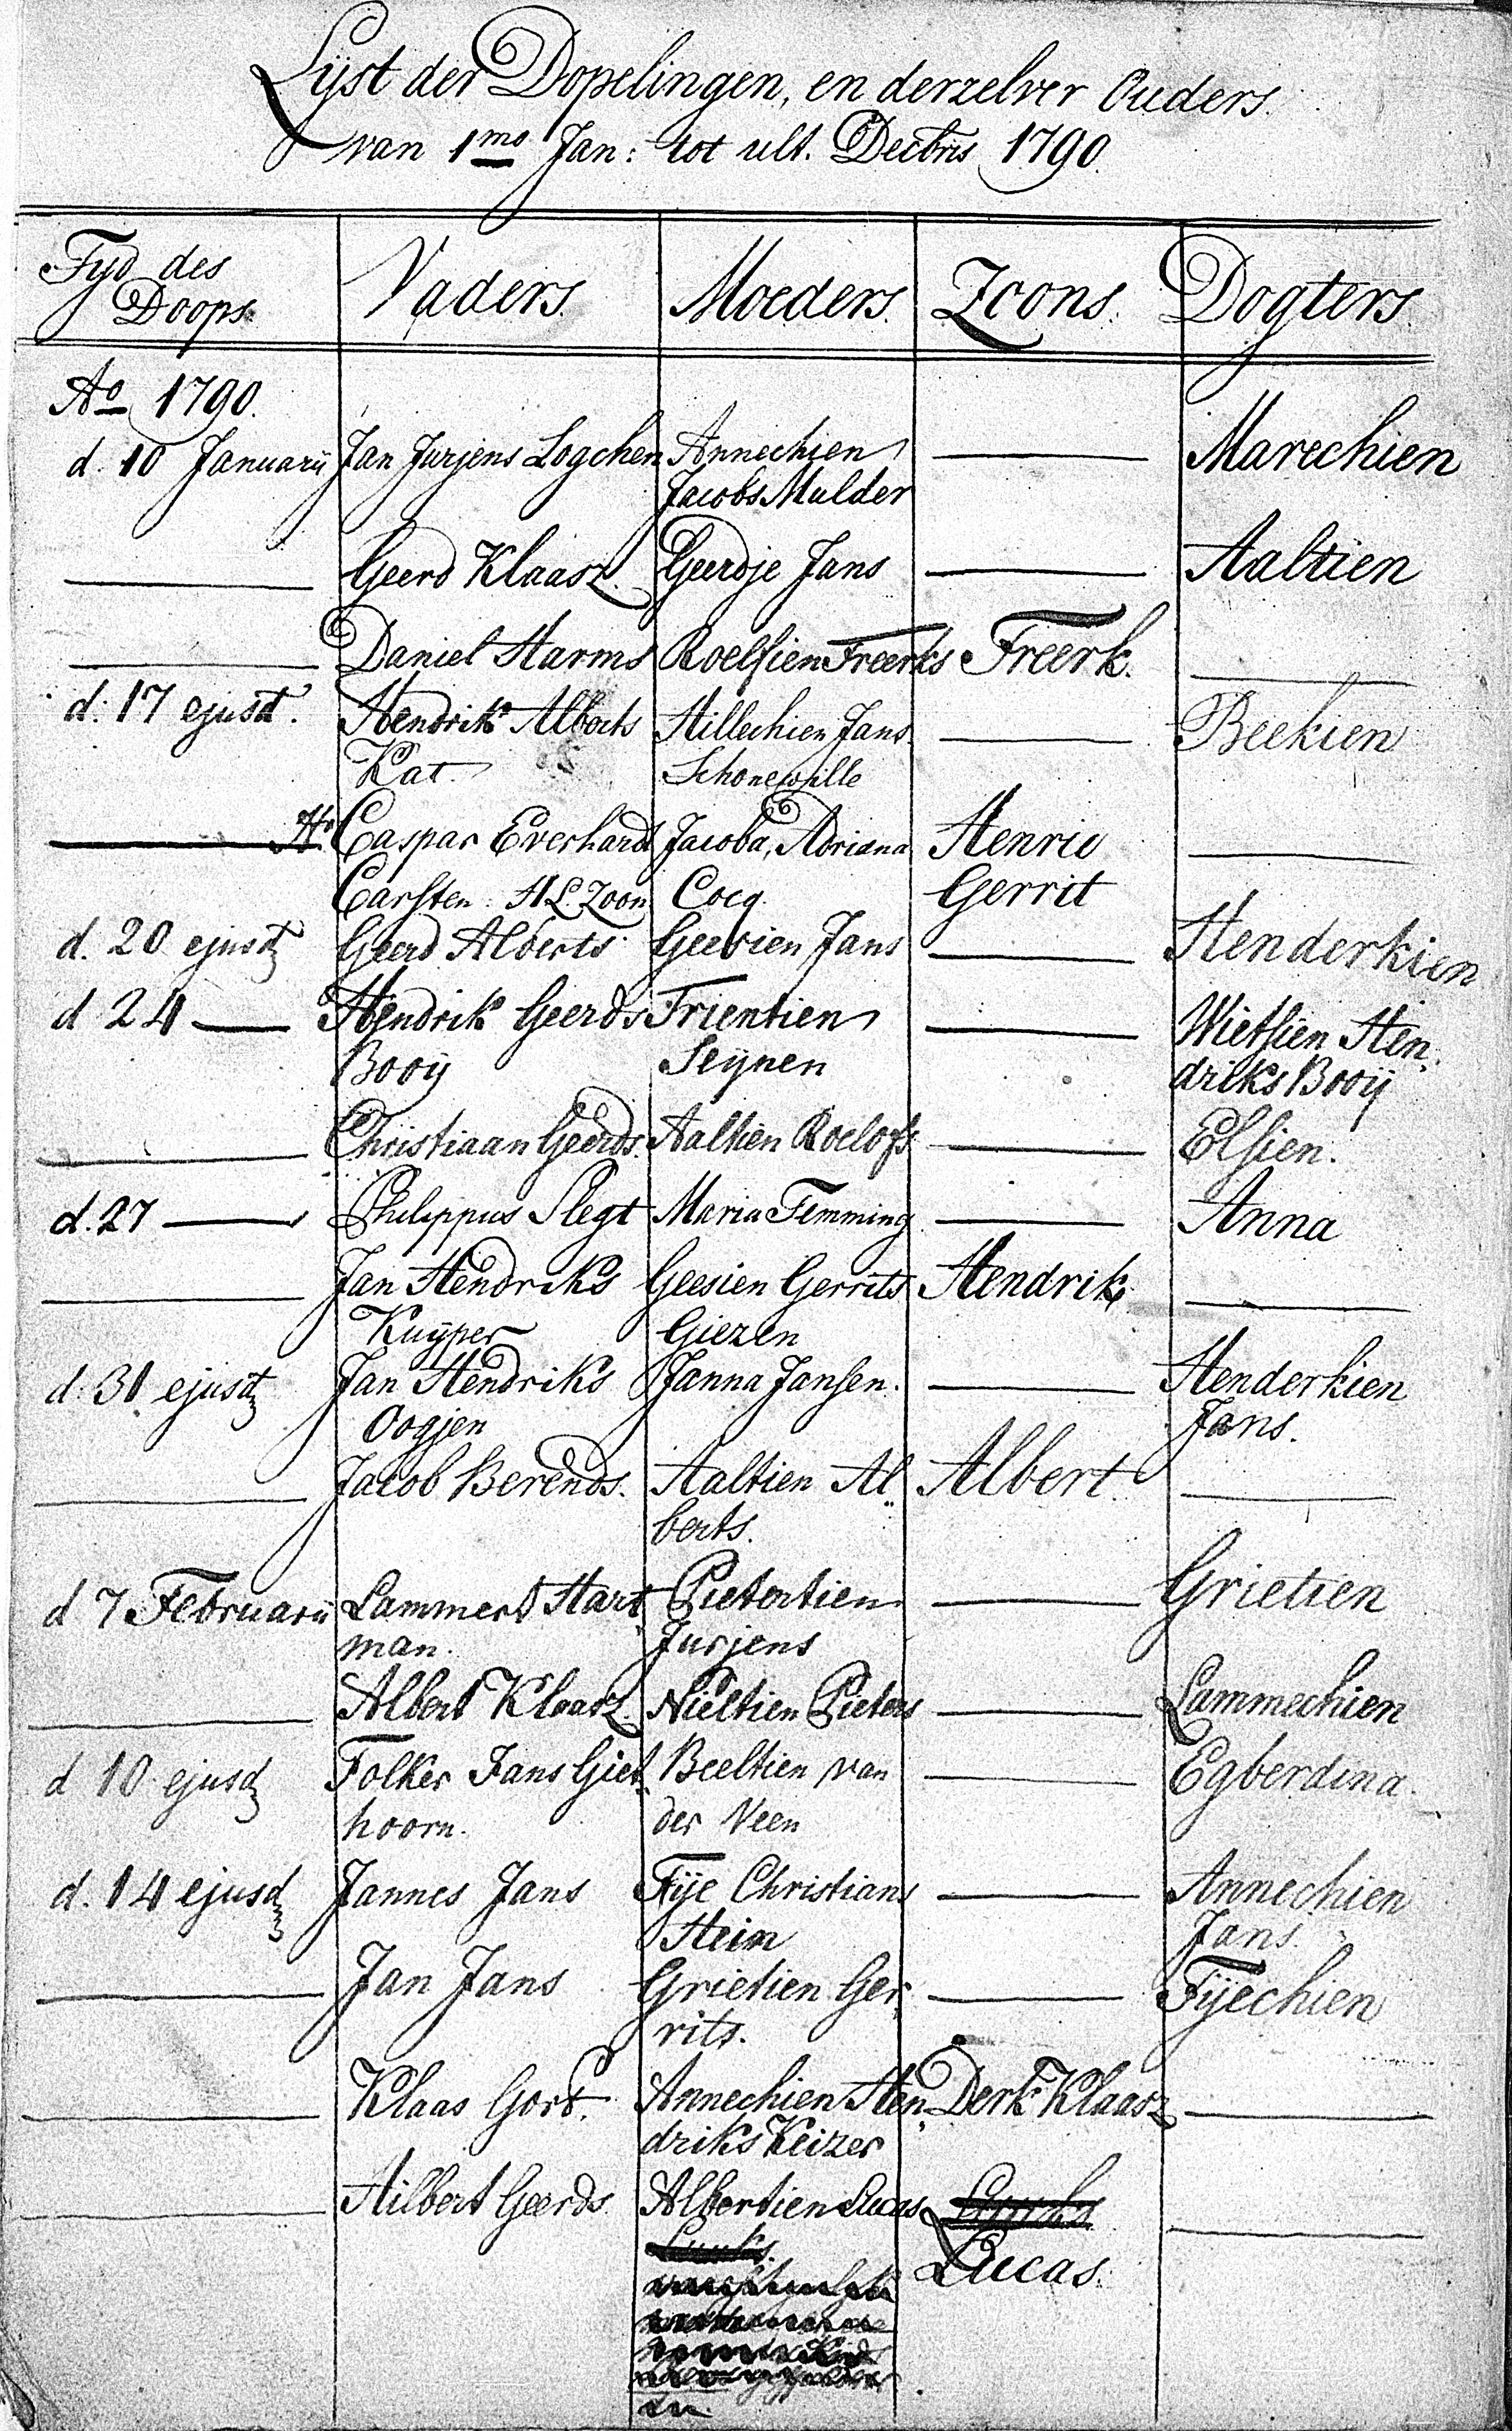 Lyst der Dopelingen, en derzelver Ouders.
van 1mo Jan: tot ult. Decbris 1790.
Tyd des Doops. Vaders. Moeders. Zoons. Dogters.
Ao 1790.
d. 10 Januarij Jan Jurjens Logchem Annechien ——— Marechien
Jacobs Mulder
——— Geerd Klaasz. Geerdje Jans ——— Aaltien
——— Daniel Harms Roelfien Freerks Freerk. ———
d: 17 ejusd. Hendrik Alberts Hillechien Jans ——— Beekien
Kat. Schonewille
——— Hr. Caspar Everhard Jacoba, Adriana Henric ———
Carsten. H L. Zoon Cocq. Gerrit
d. 20 ejusd Geerd Alberts Geesien Jans ——— Henderkien
d 24 —— Hendrik Geerds Trientien ——— Wietsien Hen„
Booij Seijnen driks Booij
——— Christiaan Geerds. Aaltien Roelofs ——— Elsien.
d. 27 —— Philippus Slegt Maria Femming ——— Anna
——— Jan Hendriks Geesien Gerrits Hendrik ———
Kuijper Giezen
d: 31 ejusd Jan Hendriks Janna Jansen. ——— Henderkien
Oogjen Jans.
——— Jacob Berends. Aaltien Al„ Albert ———
berts.
d 7 Februarij Lammert Hart„ Pietertien ——— Grietien
man. Jurjens
——— Albert Klaasz. Nieltien Pieters ——— Lammechien
d 10 ejusd Folker Jans Giet„ Beeltien van ——— Egberdina.
hoorn. der Veen
d. 14 ejusd Jannes Jans Fije Christians ——— Annechien
Stein Jans.
——— Jan Jans Grietien Ger„ ——— Fijechien
rits.
——— Klaas Gort. Annechien Hen„ Derk Klaasz ———
driks Keizer
——— Hilbert Geerds. Albertien Lucas ———
Lucas.